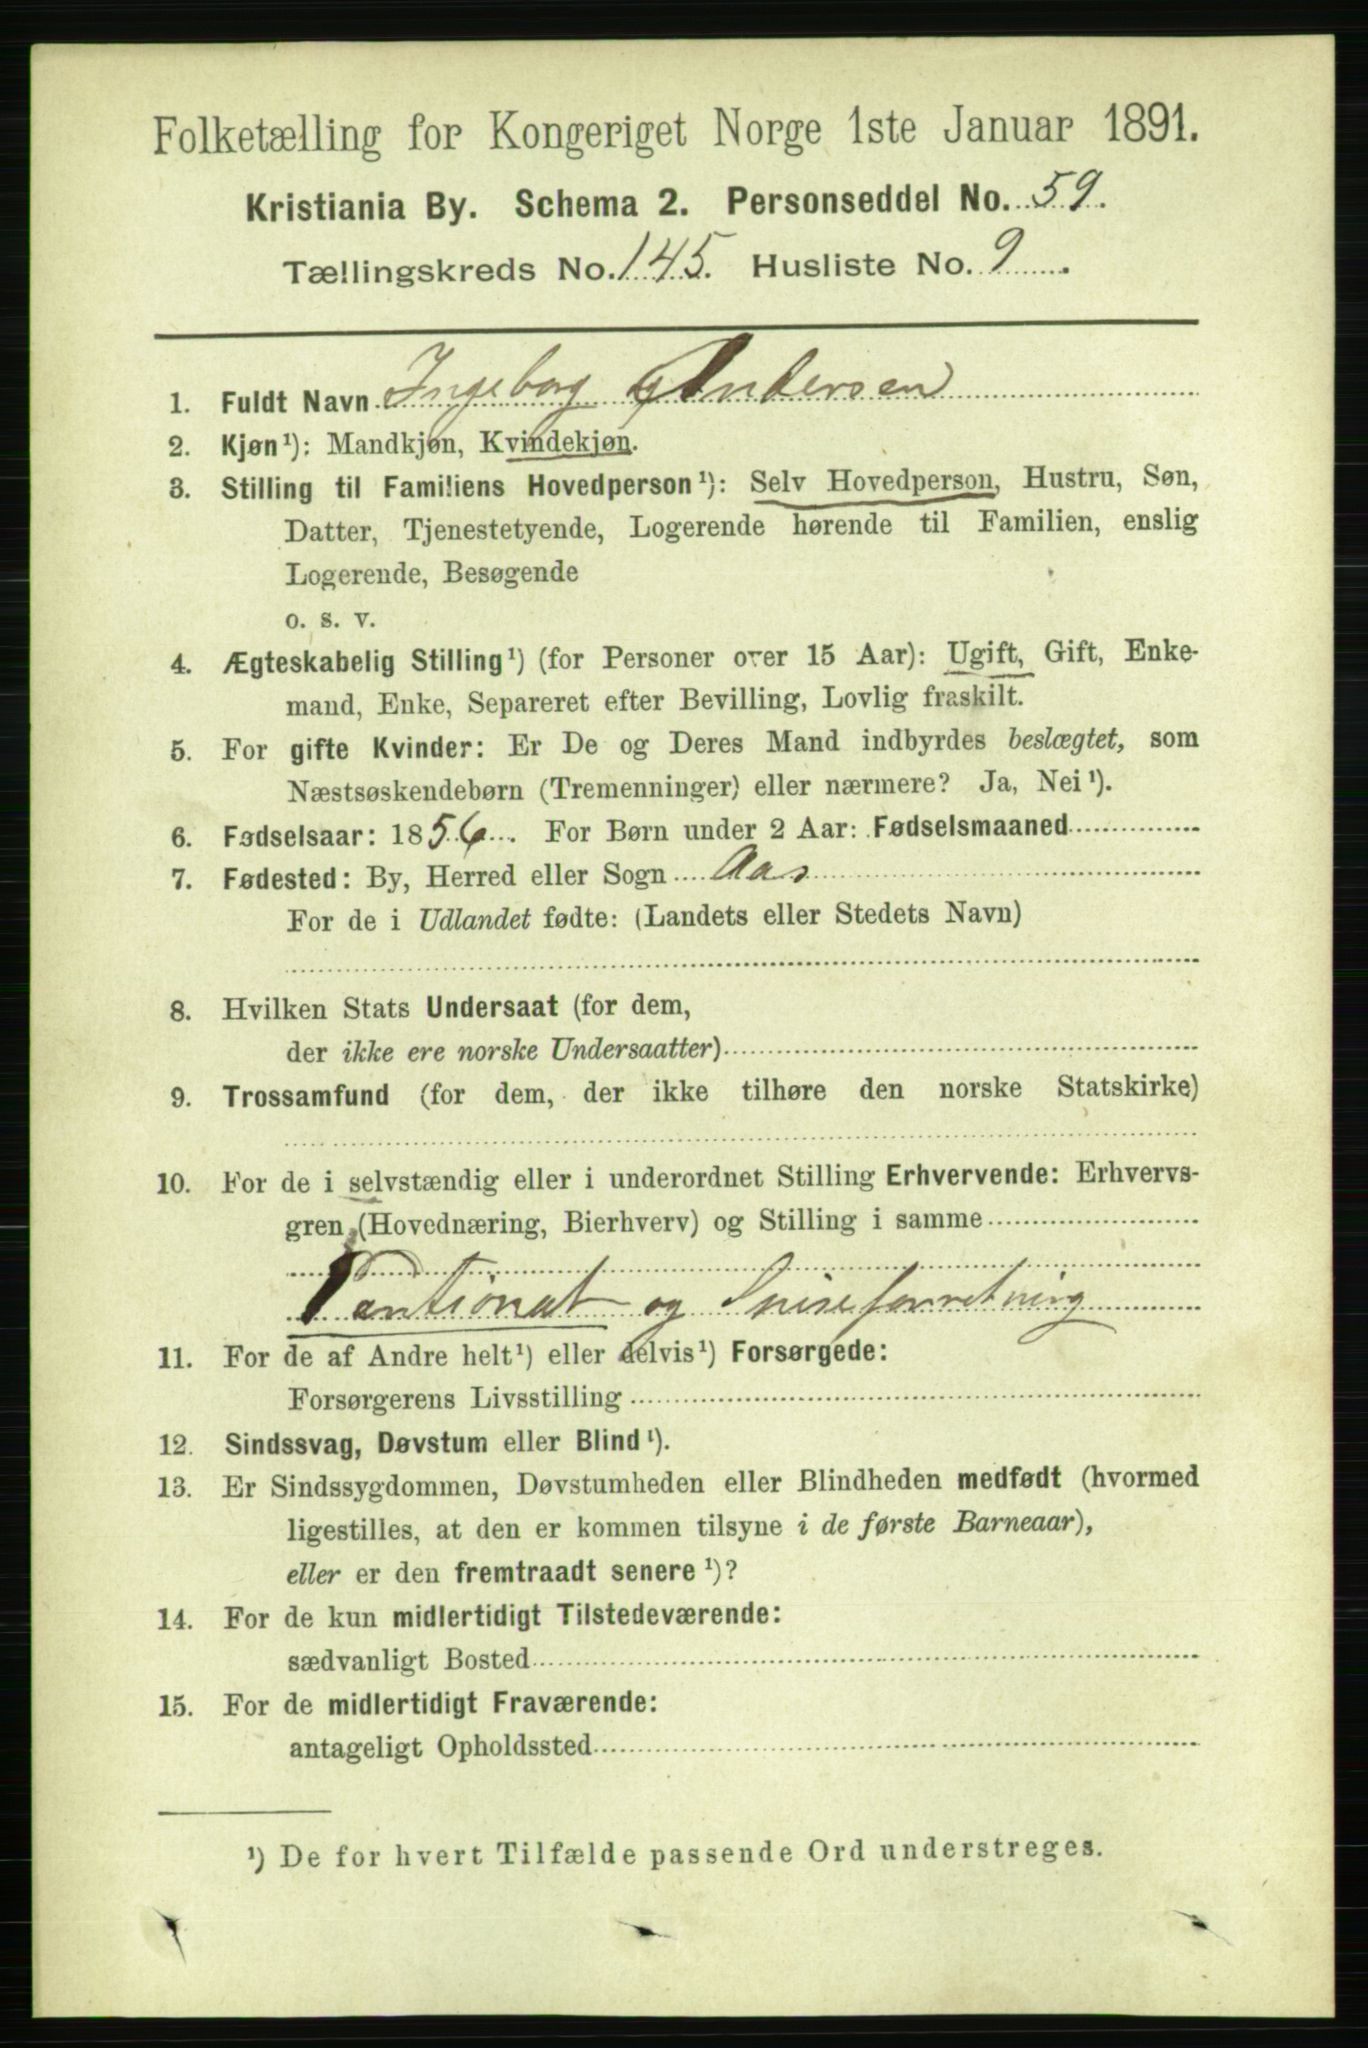 Folketælling for Kongeriget Norge 1ste Januar 1891.
Kristiania By. Schema 2. Personseddel No. 59.
Tællingskreds No. 145. Husliste No. 9.
1. Fuldt Navn Ingeborg Andersen
2. Kjøn¹): Mandkjøn, Kvindekjøn.
3. Stilling til Familiens Hovedperson¹): Selv Hovedperson, Hustru, Søn,
Datter, Tjenestetyende, Logerende hørende til Familien, enslig
Logerende, Besøgende
o. s. v.
4. Ægteskabelig Stilling¹) (for Personer over 15 Aar): Ugift, Gift, Enke-
mand, Enke, Separeret efter Bevilling, Lovlig fraskilt.
5. For gifte Kvinder: Er De og Deres Mand indbyrdes beslægtet, som
Næstsøskendebørn (Tremenninger) eller nærmere? Ja, Nei¹).
6. Fødselsaar: 1856. For Børn under 2 Aar: Fødselsmaaned
7. Fødested: By, Herred eller Sogn Aas
For de i Udlandet fødte: (Landets eller Stedets Navn)
8. Hvilken Stats Undersaat (for dem,
der ikke ere norske Undersaatter)
9. Trossamfund (for dem, der ikke tilhøre den norske Statskirke)
10. For de i selvstændig eller i underordnet Stilling Erhvervende: Erhvervs-
gren (Hovednæring, Bierhverv) og Stilling i samme
Pantionat og Spiseforretning
11. For de af Andre helt¹) eller delvis¹) Forsørgede:
Forsørgerens Livsstilling
12. Sindssvag, Døvstum eller Blind¹).
13. Er Sindssygdommen, Døvstumheden eller Blindheden medfødt (hvormed
ligestilles, at den er kommen tilsyne i de første Barneaar),
eller er den fremtraadt senere¹)?
14. For de kun midlertidigt Tilstedeværende:
sædvanligt Bosted
15. For de midlertidigt Fraværende:
antageligt Opholdssted
¹) De for hvert Tilfælde passende Ord understreges.